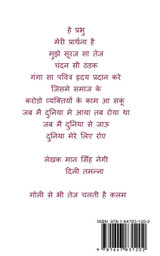 हे प्रभु
मेरी प्रार्थना है
मुझे सूरज सा तेज
चंदन सी ठंडक
गंगा सा पवित्र हृदय प्रदान करे
जिसमे समाज के
करोडो व्यक्तियों के काम आ सकूं
जब मैं दुनिया मे आया तब रोया था
जब मैं दुनिया से जाऊ
दुनिया मेरे लिए रोए
लेखक मान सिंह नेगी
दिली तमन्ना
गोली से भी तेज चलती है कलम
ISBN 978-1-64783-120-2